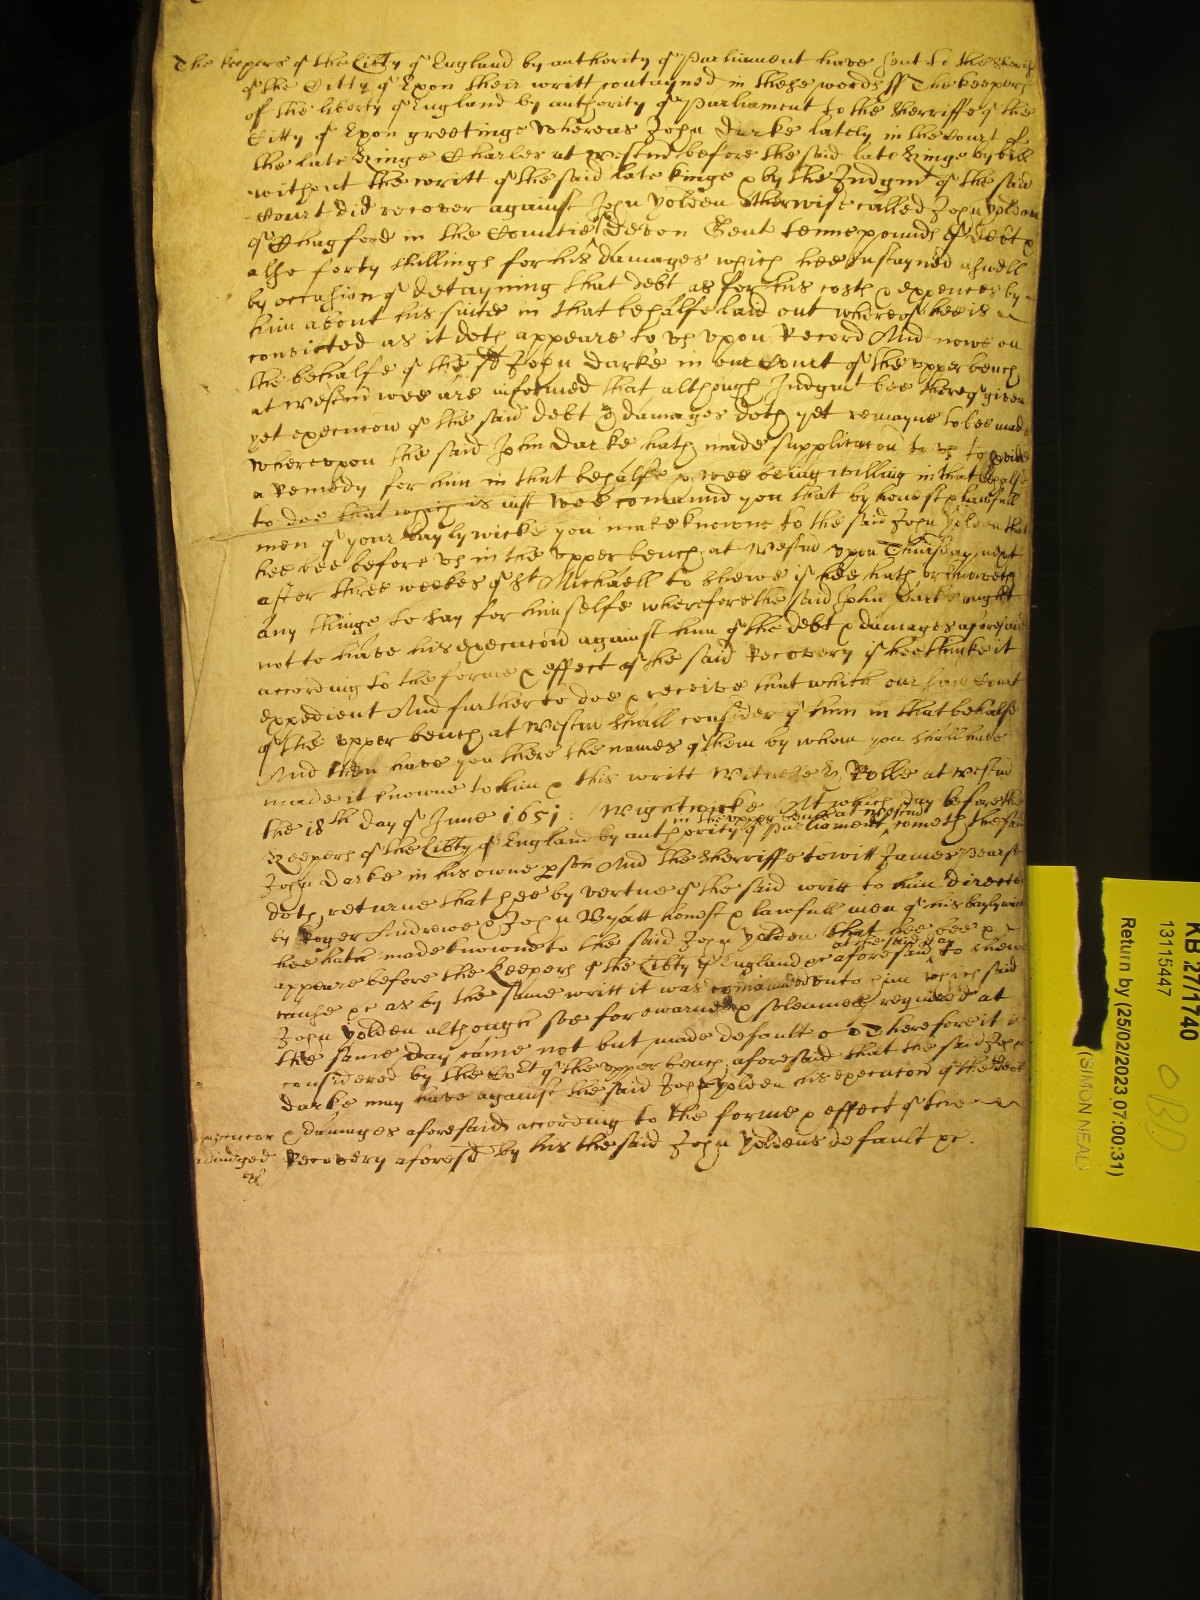 The Keepers of the Libty of England by authority of Parliament have sent to the Sheriffe
of the Citty of Exon their writt contayned in these words ss The keepers
of the liberty of England by authority of Parliament to the Sherriffe of the
Citty of Exon greetinge Whereas John Darke lately in the Court of
the late Kinge Charles at Westm before the said late Kinge by bill
without the writt of the said late kinge & by the Judgmt of the said
Court did recover against John Yolden otherwise called John Yolden
of Chagford in the Countie of Devon Gent tenne pounds of debt &
alsoe forty shillings for his damages which hee sustayned aswell
by occasion of detayning that debt as for his costs & expences by
him about his suite in that behalfe laid out whereof hee is
convicted as it doth appeare to us upon Record And nowe on
the behalfe of the sd John Darke in our Court of the upper bench
at Westm wee are informed that although Judgmt bee thereof given
yet execucon of the said debt & damages doth yet remayne to bee made
Whereupon the said John Darke hath made supplicacon to us to provide
a Remedy for him in that behalfe & wee being willing in that behalfe
to doe that which is iust Wee comaund you that by honest & lawfull
men of your baylywicke you make knowne to the said John Yolden that
hee bee before us in the upper bench at Westm upon Thursday next
after three weekes of St Michaell to shewe if hee hath or knoweth
any thinge to say for himselfe wherefore the said John Darke ought
not to have his execucon against him of the debt & damages aforesaid
according to the forme & effect of the said Recovery if hee thinke it
expedient And further to doe & receive that which our said Court
of the upper bench at Westm shall consider of him in that behalfe
And then have you there the names of them by whom you shall have
made it knowne to him & this writt Witnes H Rolle at Westm
the 18th day of June 1651: Wightwicke At which day before the
in the upper bench at Westm
Keepers of the Libty of England by authority of Parliament cometh the said
John Darke in his owne pson And the Sherriffe to witt James Pearse
doth returne that hee by vertue of the said writt to him directed
by Roger Andrewe & John Wyatt honest & lawfull men of his baylywicke
hee hath made knowne to the said John Yolden that hee bee &
at the said day
appeare before the Keepers of the Libty of England &c aforesaid to shew
cause &c as by the same writt it was comaunded unto him which said
John Yolden although soe forewarned & solemnely required at
the same day came not but made default Therefore it is
considered by the Cort of the upper bench aforesaid that the said John
Darke may have against the said John Yolden his execucon of the debt
& damages aforesaid according to the forme & effect of the
Recovery aforesd by his the said John Yoldens default &c.
execucon
adiudged
KB 27/1740
13115447
Return by (25/02/2023 07:00:31)
(SIMON NEAL)